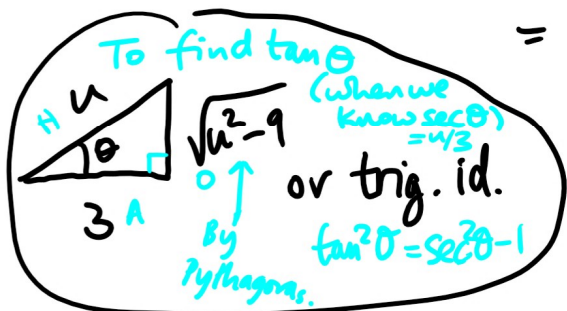 =
To find tanθ
(when we
know secθ)
= u/3
H u
θ
√u²-9
O
3 A
By
Pythagoras.
or trig. id.
tan²θ = sec²θ-1